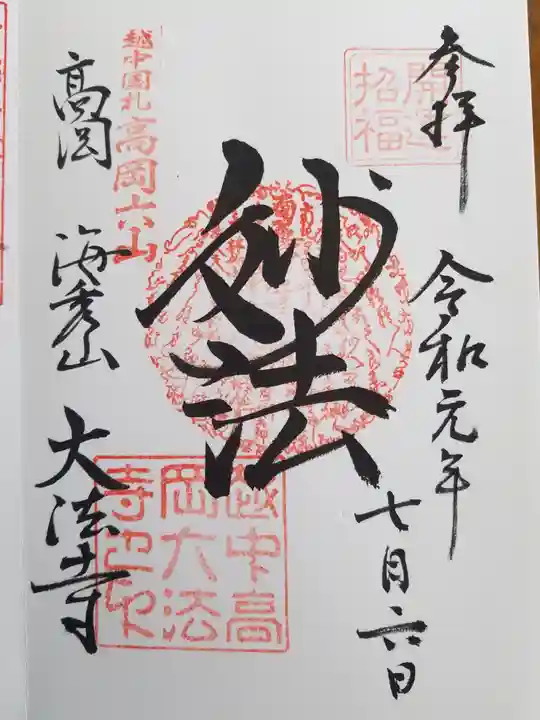 参拝
令和元年七月六日
開運
招福
妙法
越中国札高岡六山
高岡 海秀山 大法寺
越中高
岡大法
寺之印